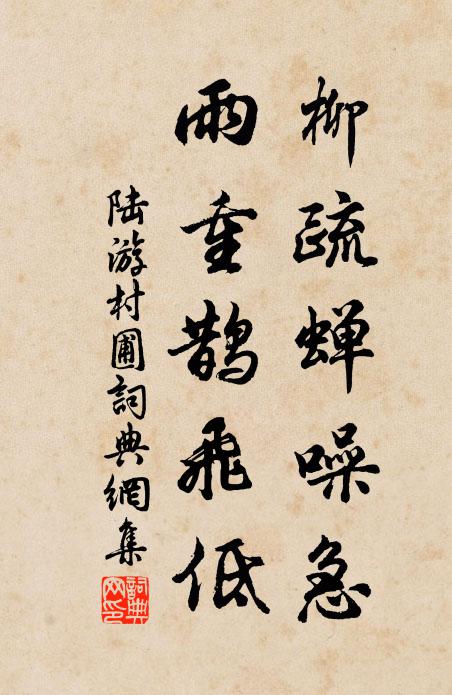 柳疏蝉噪急
雨重鹊飞低
陆游村圃詞典網集
詞典
网印